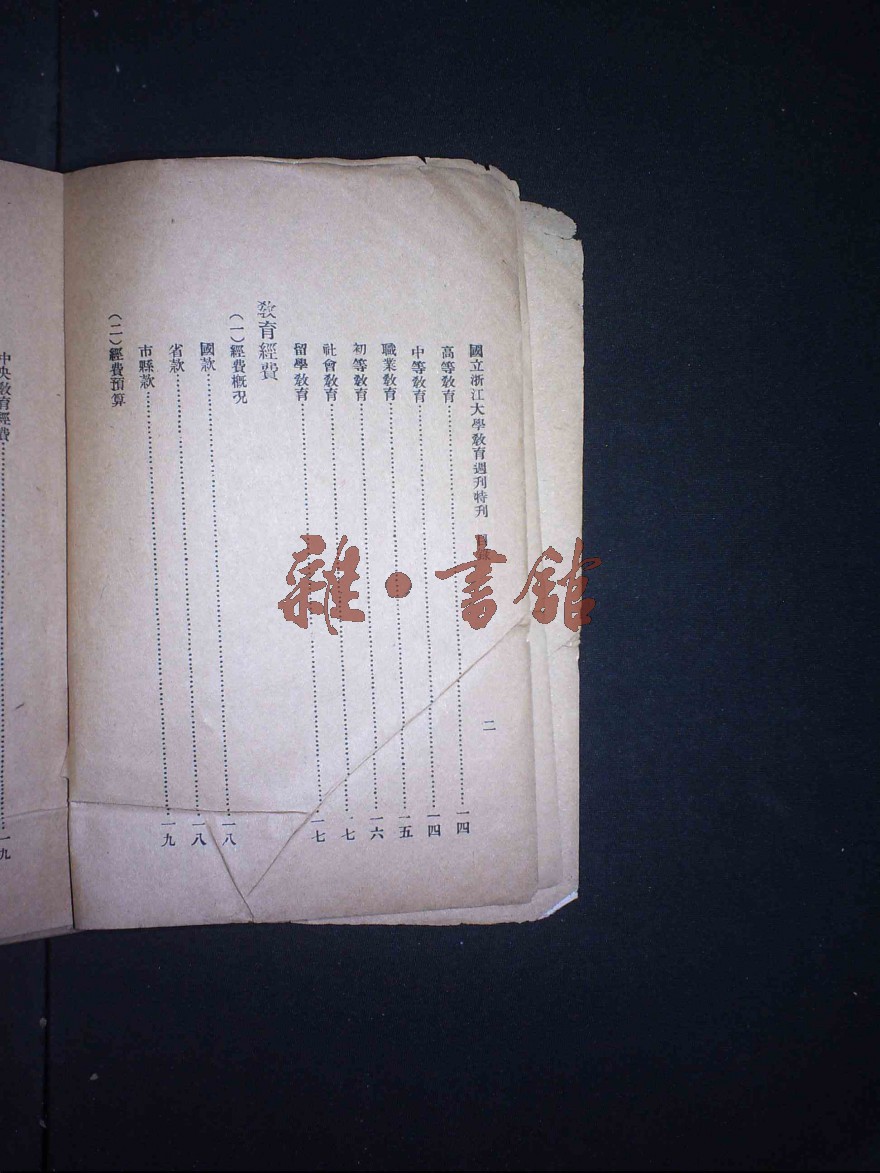 國立浙江大學教育週刊特刊
二
高等教育……………………一四
中等教育……………………一四
職業教育……………………一五
初等教育……………………一六
社會教育……………………七
留學教育……………………一七
教育經費
(一)經費概况
國款……………………一八
省款……………………一八
市縣款……………………一九
(二)經費預算
中央教育經費……………………一九
雜·書館